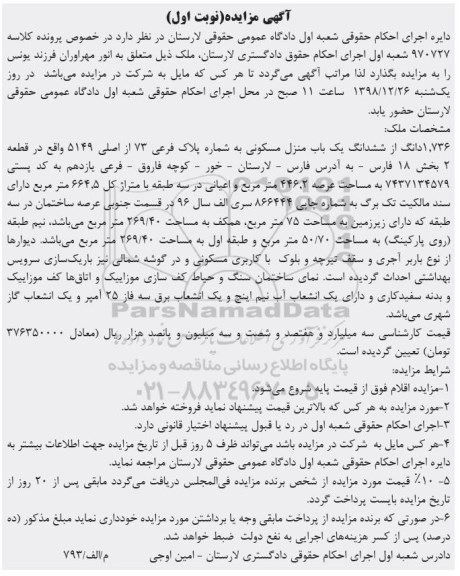 آگهی مزایده(نوبت اول)
دایره اجرای احکام حقوقی شعبه اول دادگاه عمومی حقوقی لارستان در نظر دارد در خصوص پرونده کلاسه
۹۷۰۷۲۷ شعبه اول اجرای احکام حقوق دادگستری لارستان، ملک ذیل متعلق به انور مهراوران فرزند یونس
را به مزایده بگذارد لذا مراتب آگهی می‌گردد تا هر کس که مایل به شرکت در مزایده می‌باشد در روز
یک‌شنبه ۱۳۹۸/۱۲/۲۶ ساعت ۱۱ صبح در محل اجرای احکام حقوقی شعبه اول دادگاه عمومی حقوقی
لارستان حضور یابد.
مشخصات ملک:
۱,۷۳۶دانگ از ششدانگ یک باب منزل مسکونی به شماره پلاک فرعی ۷۳ از اصلی ۵۱۴۹ واقع در قطعه
۲ بخش ۱۸ فارس - به آدرس فارس - لارستان - خور - کوچه فاروق - فرعی یازدهم به کد پستی
۷۴۳۷۱۳۴۵۷۹ به مساحت عرصه ۴۴۶,۲ متر مربع و اعیانی در سه طبقه با متراژ کل ۶۶۴,۵ متر مربع دارای
سند مالکیت تک برگ به شماره چاپی ۸۶۶۴۴۴ سری الف سال ۹۶ در قسمت جنوبی عرصه ساختمان در سه
طبقه که دارای زیرزمین به مساحت ۷۵ متر مربع، همکف به مساحت ۲۶۹/۴۰ متر مربع می‌باشد، نیم طبقه
(روی پارکینگ) به مساحت ۵۰/۷۰ متر مربع و طبقه اول به مساحت ۲۶۹/۴۰ متر مربع می‌باشد. دیوارها
از نوع باربر آجری و سقف تیرچه و بلوک با کاربری مسکونی و در گوشه شمالی نیز باریک‌سازی سرویس
بهداشتی احداث گردیده است. نمای ساختمان سنگ و حیاط کف سازی موزاییک و اتاق‌ها کف موزاییک
و بدنه سفیدکاری و دارای یک انشعاب آب نیم اینچ و یک انشعاب برق سه فاز ۲۵ آمپر و یک انشعاب گاز
شهری می‌باشد.
قیمت کارشناسی سه میلیارد و هفتصد و شصت و سه میلیون و پانصد هزار ریال (معادل ۳۷۶۳۵۰۰۰۰
تومان) تعیین گردیده است.
شرایط مزایده:
۱-مزایده اقلام فوق از قیمت پایه شروع می‌شود.
۲-مورد مزایده به هر کس که بالاترین قیمت پیشنهاد نماید فروخته خواهد شد.
۳-اجرای احکام حقوقی شعبه اول در رد یا قبول پیشنهاد اختیار قانونی دارد.
۴-هر کس مایل به شرکت در مزایده باشد می‌تواند ظرف ۵ روز قبل از تاریخ مزایده جهت اطلاعات بیشتر به
دایره اجرای احکام حقوقی شعبه اول دادگاه عمومی حقوقی لارستان مراجعه نماید.
۵- ۱۰٪ قیمت مورد مزایده از شخص برنده مزایده فی‌المجلس دریافت می‌گردد مابقی پس از ۲۰ روز از
تاریخ مزایده بایست پرداخت گردد.
۶-در صورتی که برنده مزایده از پرداخت مابقی وجه یا برداشتن مورد مزایده خودداری نماید مبلغ مذکور (ده
درصد) پس از کسر هزینه‌های اجرایی به نفع دولت ضبط خواهد شد.
دادرس شعبه اول اجرای احکام حقوقی دادگستری لارستان - امین اوجی م/الف/۷۹۳
ParsNamadData
پایگاه اطلاع رسانی مناقصه و مزایده